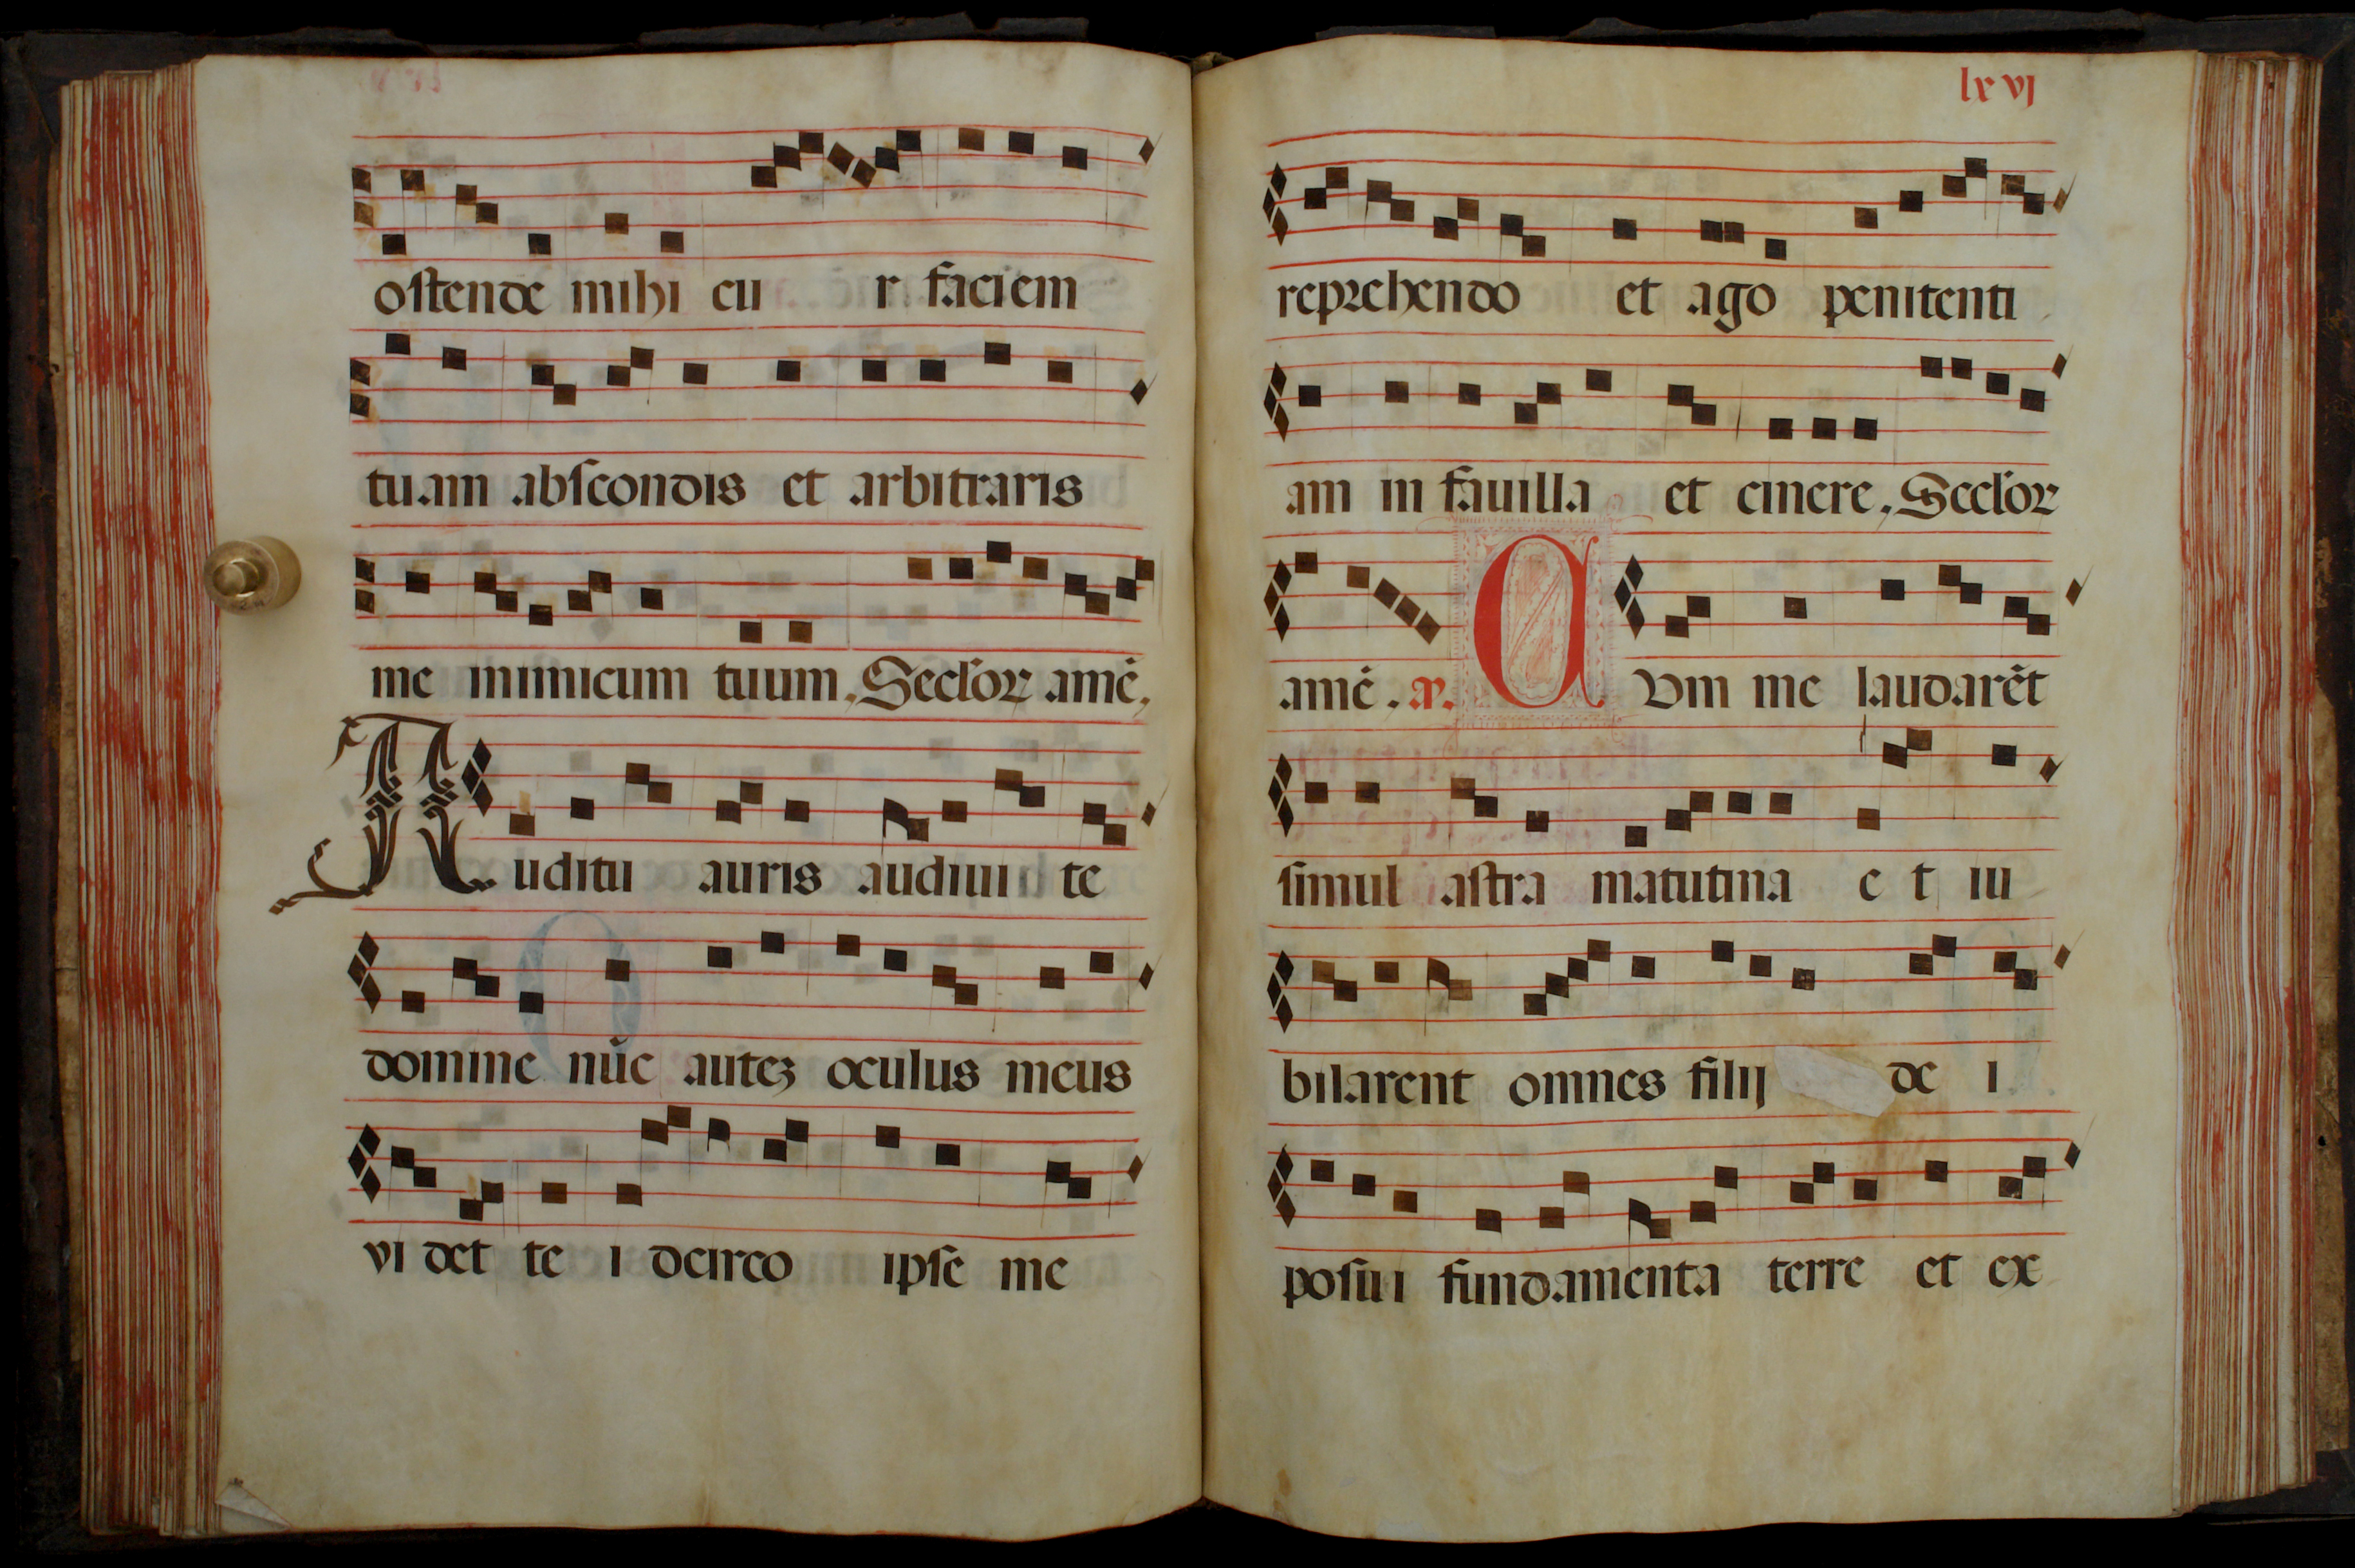 oſtende mihi cu r faciem
tuam abſcondis et arbitraris
me inimicum tuum, Seclor amē,
Auditu auris audiui te
domine nūc auteꝫ oculus meus
vi det te i dcirco ipſe me
lxvj
reprehendo et ago penitenti
am in fauilla et cinere, Seclor
amē, Cum me laudarēt
ſimul aſtra matutina e t iu
bilarent omnes filij de i
poſui fundamenta terre et ex